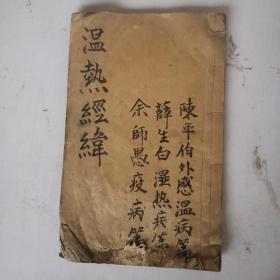 陳平伯外感温病篇
薛生白湿热病篇
余師愚疫病篇
温熱經緯